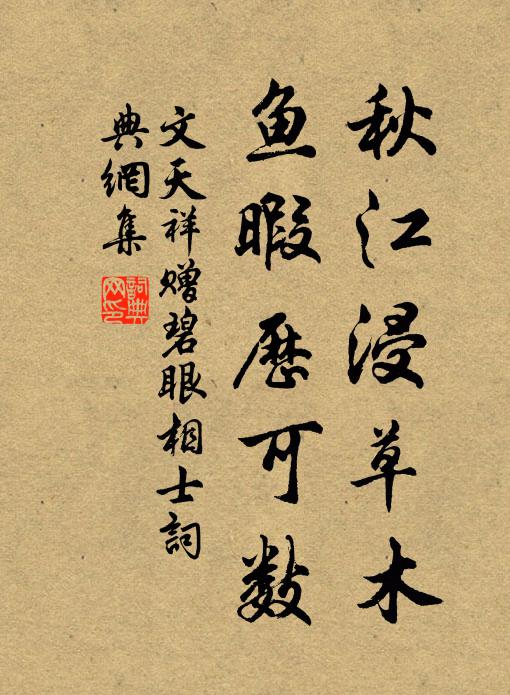 秋江浸草木
鱼暇历可数
文天祥赠碧眼相士词
典網集
詞典
网印